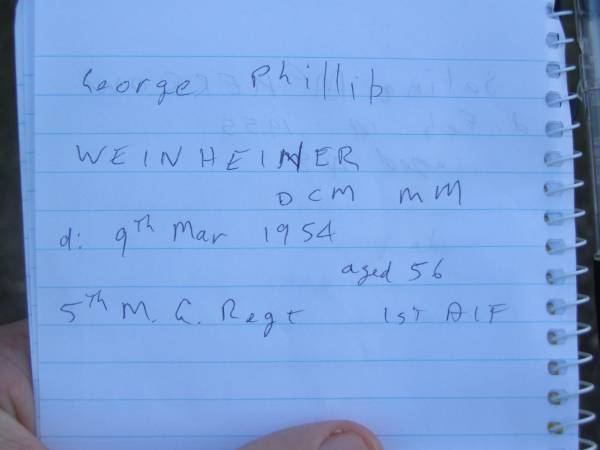 George Phillip
WEINHEIMER
DCM MM
d: 9th Mar 1954
aged 56
5th M. G. Regt 1st AIF